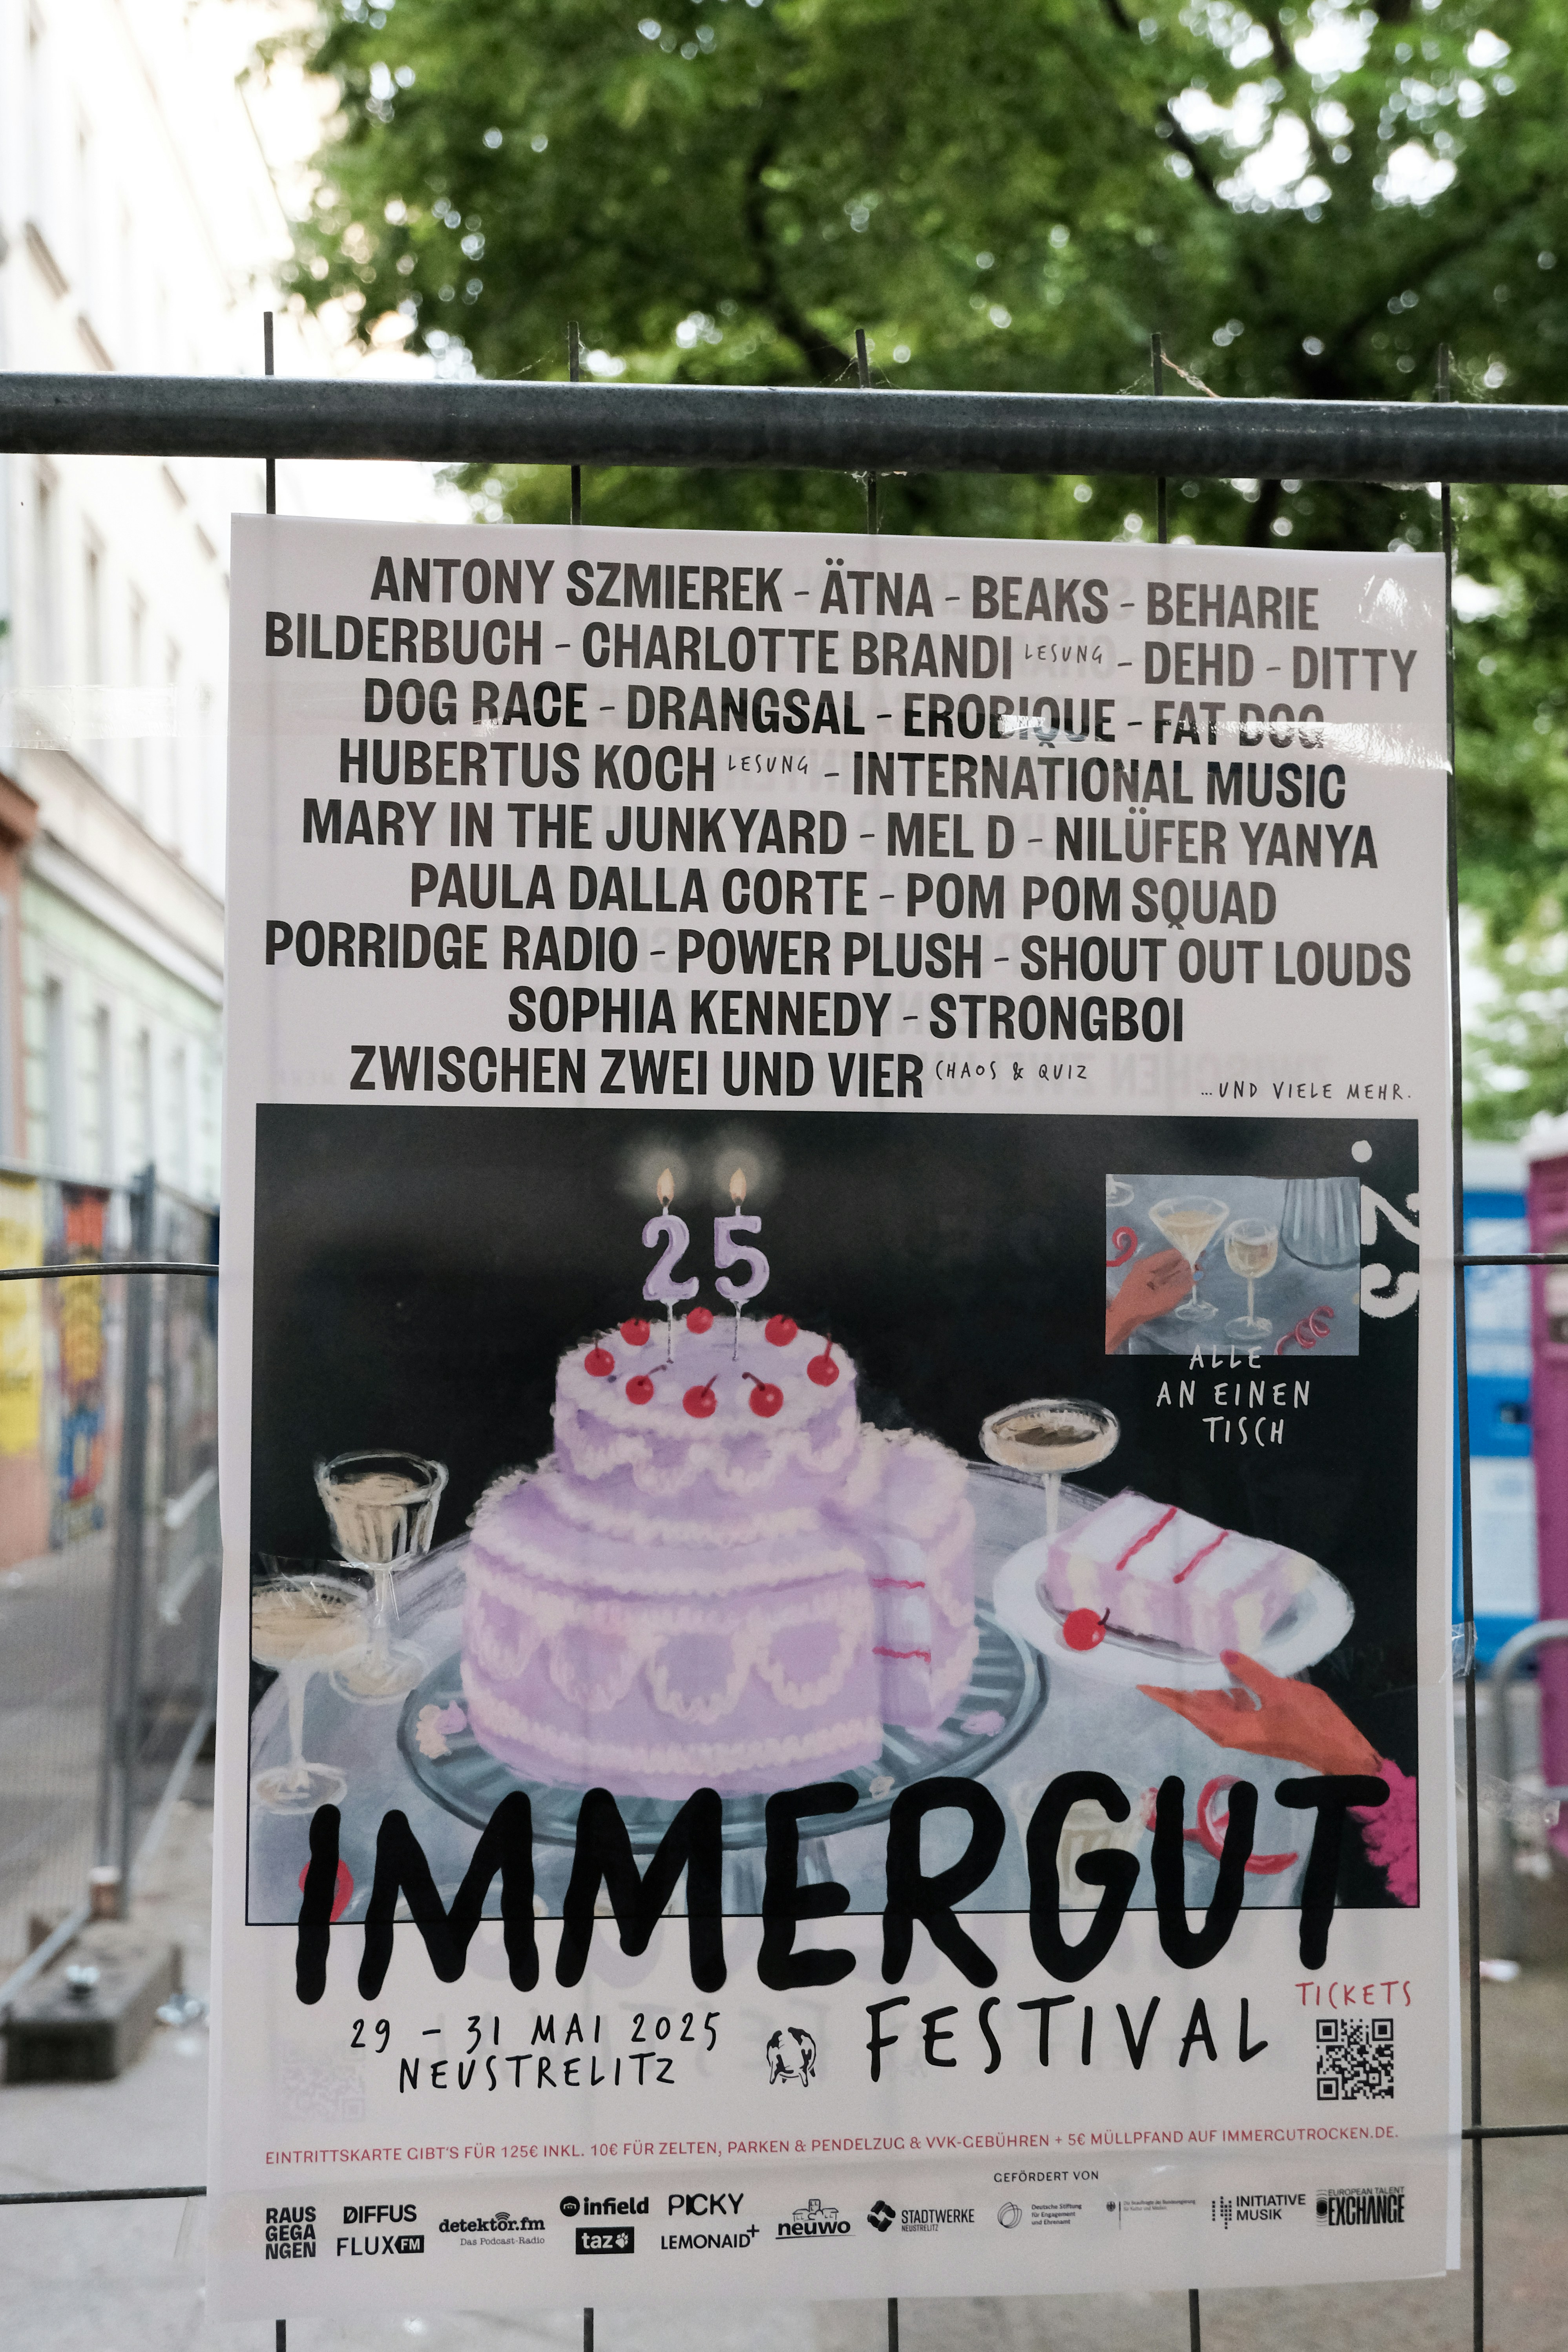 ANTONY SZMIEREK - ÄTNA - BEAKS - BEHARIE
BILDERBUCH - CHARLOTTE BRANDI LESUNG - DEHD - DITTY
DOG RACE - DRANGSAL - EROBIQUE - FAT DOG
HUBERTUS KOCH LESUNG - INTERNATIONAL MUSIC
MARY IN THE JUNKYARD - MEL D - NILÜFER YANYA
PAULA DALLA CORTE - POM POM SQUAD
PORRIDGE RADIO - POWER PLUSH - SHOUT OUT LOUDS
SOPHIA KENNEDY - STRONGBOI
ZWISCHEN ZWEI UND VIER CHAOS & QUIZ
...UND VIELE MEHR.
25
.25
ALLE
AN EINEN
TISCH
IMMERGUT
FESTIVAL
29 - 31 MAI 2025
NEUSTRELITZ
TICKETS
EINTRITTSKARTE GIBT'S FÜR 125€ INKL. 10€ FÜR ZELTEN, PARKEN & PENDELZUG & VVK-GEBÜHREN + 5€ MÜLLPFAND AUF IMMERGUTROCKEN.DE.
GEFÖRDERT VON
RAUS
GEGA
NGEN
DIFFUS
FLUX FM
detektor.fm
Das Podcast-Radio
infield
taz
PICKY
LEMONAID+
neuwo
STADTWERKE
NEUSTRELITZ
Deutsche Stiftung
für Engagement
und Ehrenamt
INITIATIVE
MUSIK
EUROPEAN TALENT
EXCHANGE